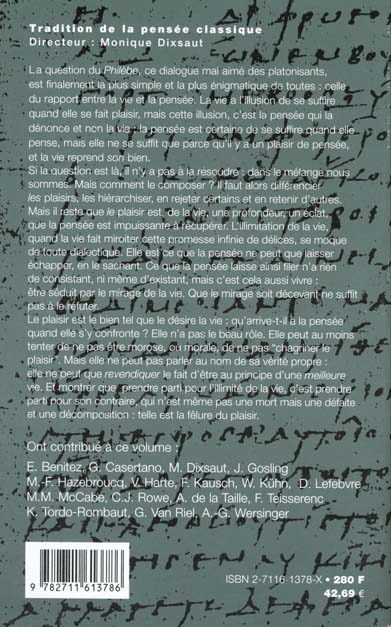 Tradition de la pensée classique
Directeur : Monique Dixsaut
La question du Philèbe, ce dialogue mal aimé des platonisants,
est finalement la plus simple et la plus énigmatique de toutes : celle
du rapport entre la vie et la pensée. La vie a l'illusion de se suffire
quand elle se fait plaisir, mais cette illusion, c'est la pensée qui la
dénonce et non la vie ; la pensée est certaine de se suffire quand elle
pense, mais elle ne se suffit que parce qu'il y a un plaisir de pensée,
et la vie reprend son bien.
Si la question est là, il n'y a pas à la résoudre : dans le mélange nous
sommes. Mais comment le composer ? Il faut alors différencier
les plaisirs, les hiérarchiser, en rejeter certains et en retenir d'autres.
Mais il reste que le plaisir est, de la vie, une profondeur, un éclat,
que la pensée est impuissante à récupérer. L'illimitation de la vie,
quand la vie fait miroiter cette promesse infinie de délices, se moque
de toute dialectique. Elle est ce que la pensée ne peut que laisser
échapper, en le sachant. Ce que la pensée laisse ainsi filer n'a rien
de consistant, ni même d'existant, mais c'est cela aussi vivre :
être séduit par le mirage de la vie. Que le mirage soit décevant ne suffit
pas à le réfuter.
Le plaisir est le bien tel que le désire la vie : qu'arrive-t-il à la pensée
quand elle s'y confronte ? Elle n'a pas le beau rôle. Elle peut au moins
tenter de ne pas être morose, ou morale, de ne pas "chagriner le
plaisir". Mais elle ne peut pas parler au nom de sa vérité propre :
elle ne peut que revendiquer le fait d'être au principe d'une meilleure
vie. Et montrer que prendre parti pour l'illimité de la vie, c'est prendre
parti pour son contraire, qui n'est même pas une mort mais une défaite
et une décomposition : telle est la fêlure du plaisir.
Ont contribué à ce volume :
E. Benitez, G. Casertano, M. Dixsaut, J. Gosling
M.-F. Hazebroucq, V. Harte, F. Kausch, W. Kühn, D. Lefebvre
M.M. McCabe, C.J. Rowe, A. de la Taille, F. Teisserenc
K. Tordo-Rombaut, G. Van Riel, A.-G. Wersinger
9 782711 613786
ISBN 2-7116-1378-X • 280 F
42,69 €